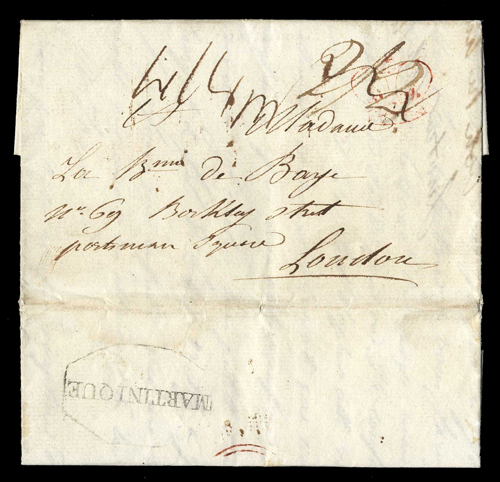 Madame
La Bnne de Baye
No. 69 Berkley street
portman Square
London
MARTINIQUE